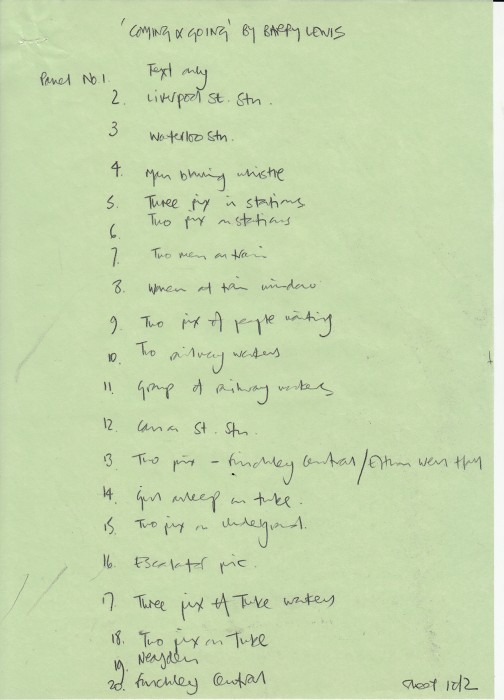 'COMING & GOING' BY BARRY LEWIS
Panel No. 1. Text only
2. Liverpool St. Stn.
3 Waterloo Stn.
4. Man blowing whistle
5. Three pix in stations
6. Two pix in stations
7. Two men on train
8. Women at train window
9. Two pix of people waiting
10. Two railway workers
11. Group of railway workers
12. Cannon St. Stn.
13 Two pix - Finchley Central / Eltham Well Hall
14. Girl asleep on tube.
15. Two pix on underground.
16. Escalator pic.
17. Three pix of Tube workers
18. Two pix on Tube
19. Neasden
20. Finchley Central
Sheet 1 of 2